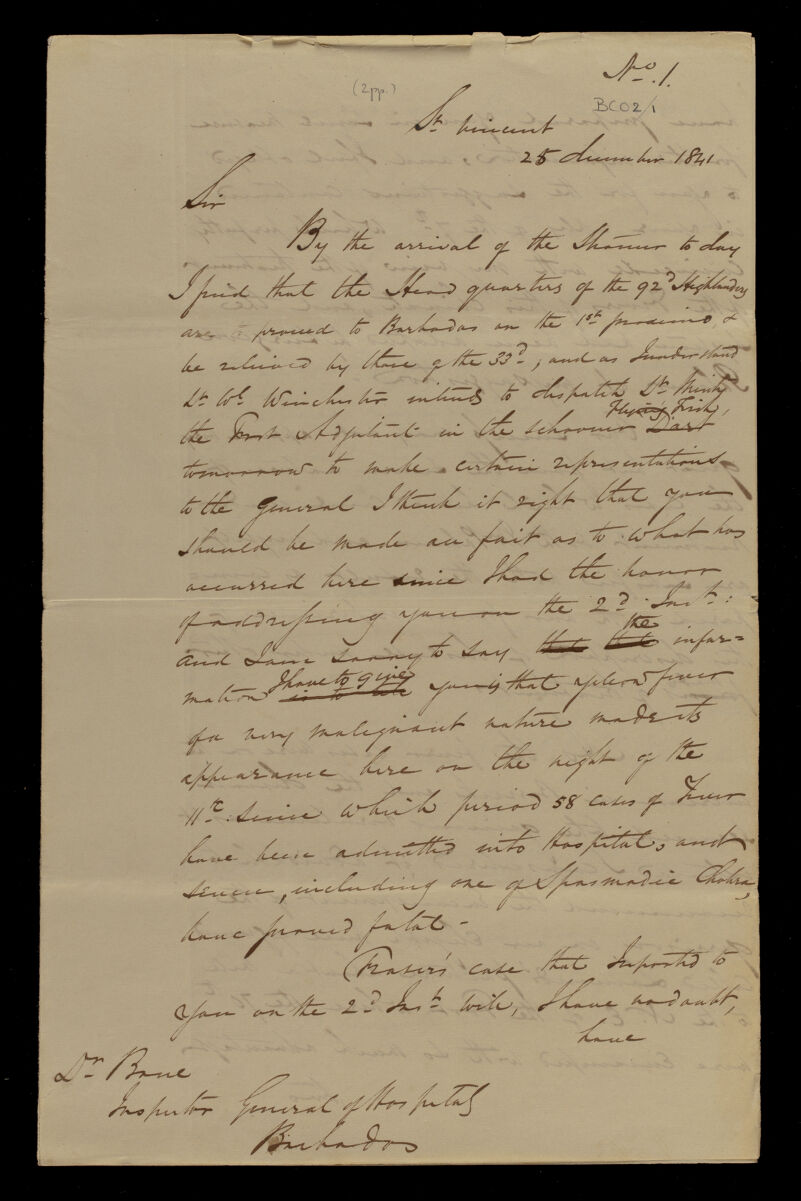 No. 1.
(2pp.)
BC02/1
St Vincent
25 December 1841
Sir
By the arrival of the Steamer to day
I find that the Head quarters of the 92d Highlanders
are to proceed to Barbados on the 1st proximo &
be relieved by those of the 33d, and as I understand
Lt Col Winchester intends to dispatch Lt
Flying Fish,
the Fort Adjutant in the schooner Dart
tomorrow to make certain representations
to the General I think it right that you
should be made au fait as to what has
occurred here since I had the honor
of addressing you on the 2d Inst:
the
and I am sorry to say that that infor=
I have to give
mation is to you is that a fever
of a very malignant nature made its
appearance here on the night of the
11th since which period 58 cases of Fever
have been admitted into Hospital, and
seven, including one of Spasmodic Cholera,
have proved fatal -
Fraser's case that I reported to
you on the 2d Inst will, I have no doubt,
have
Dr Bone
Inspector General of Hospitals
Barbados